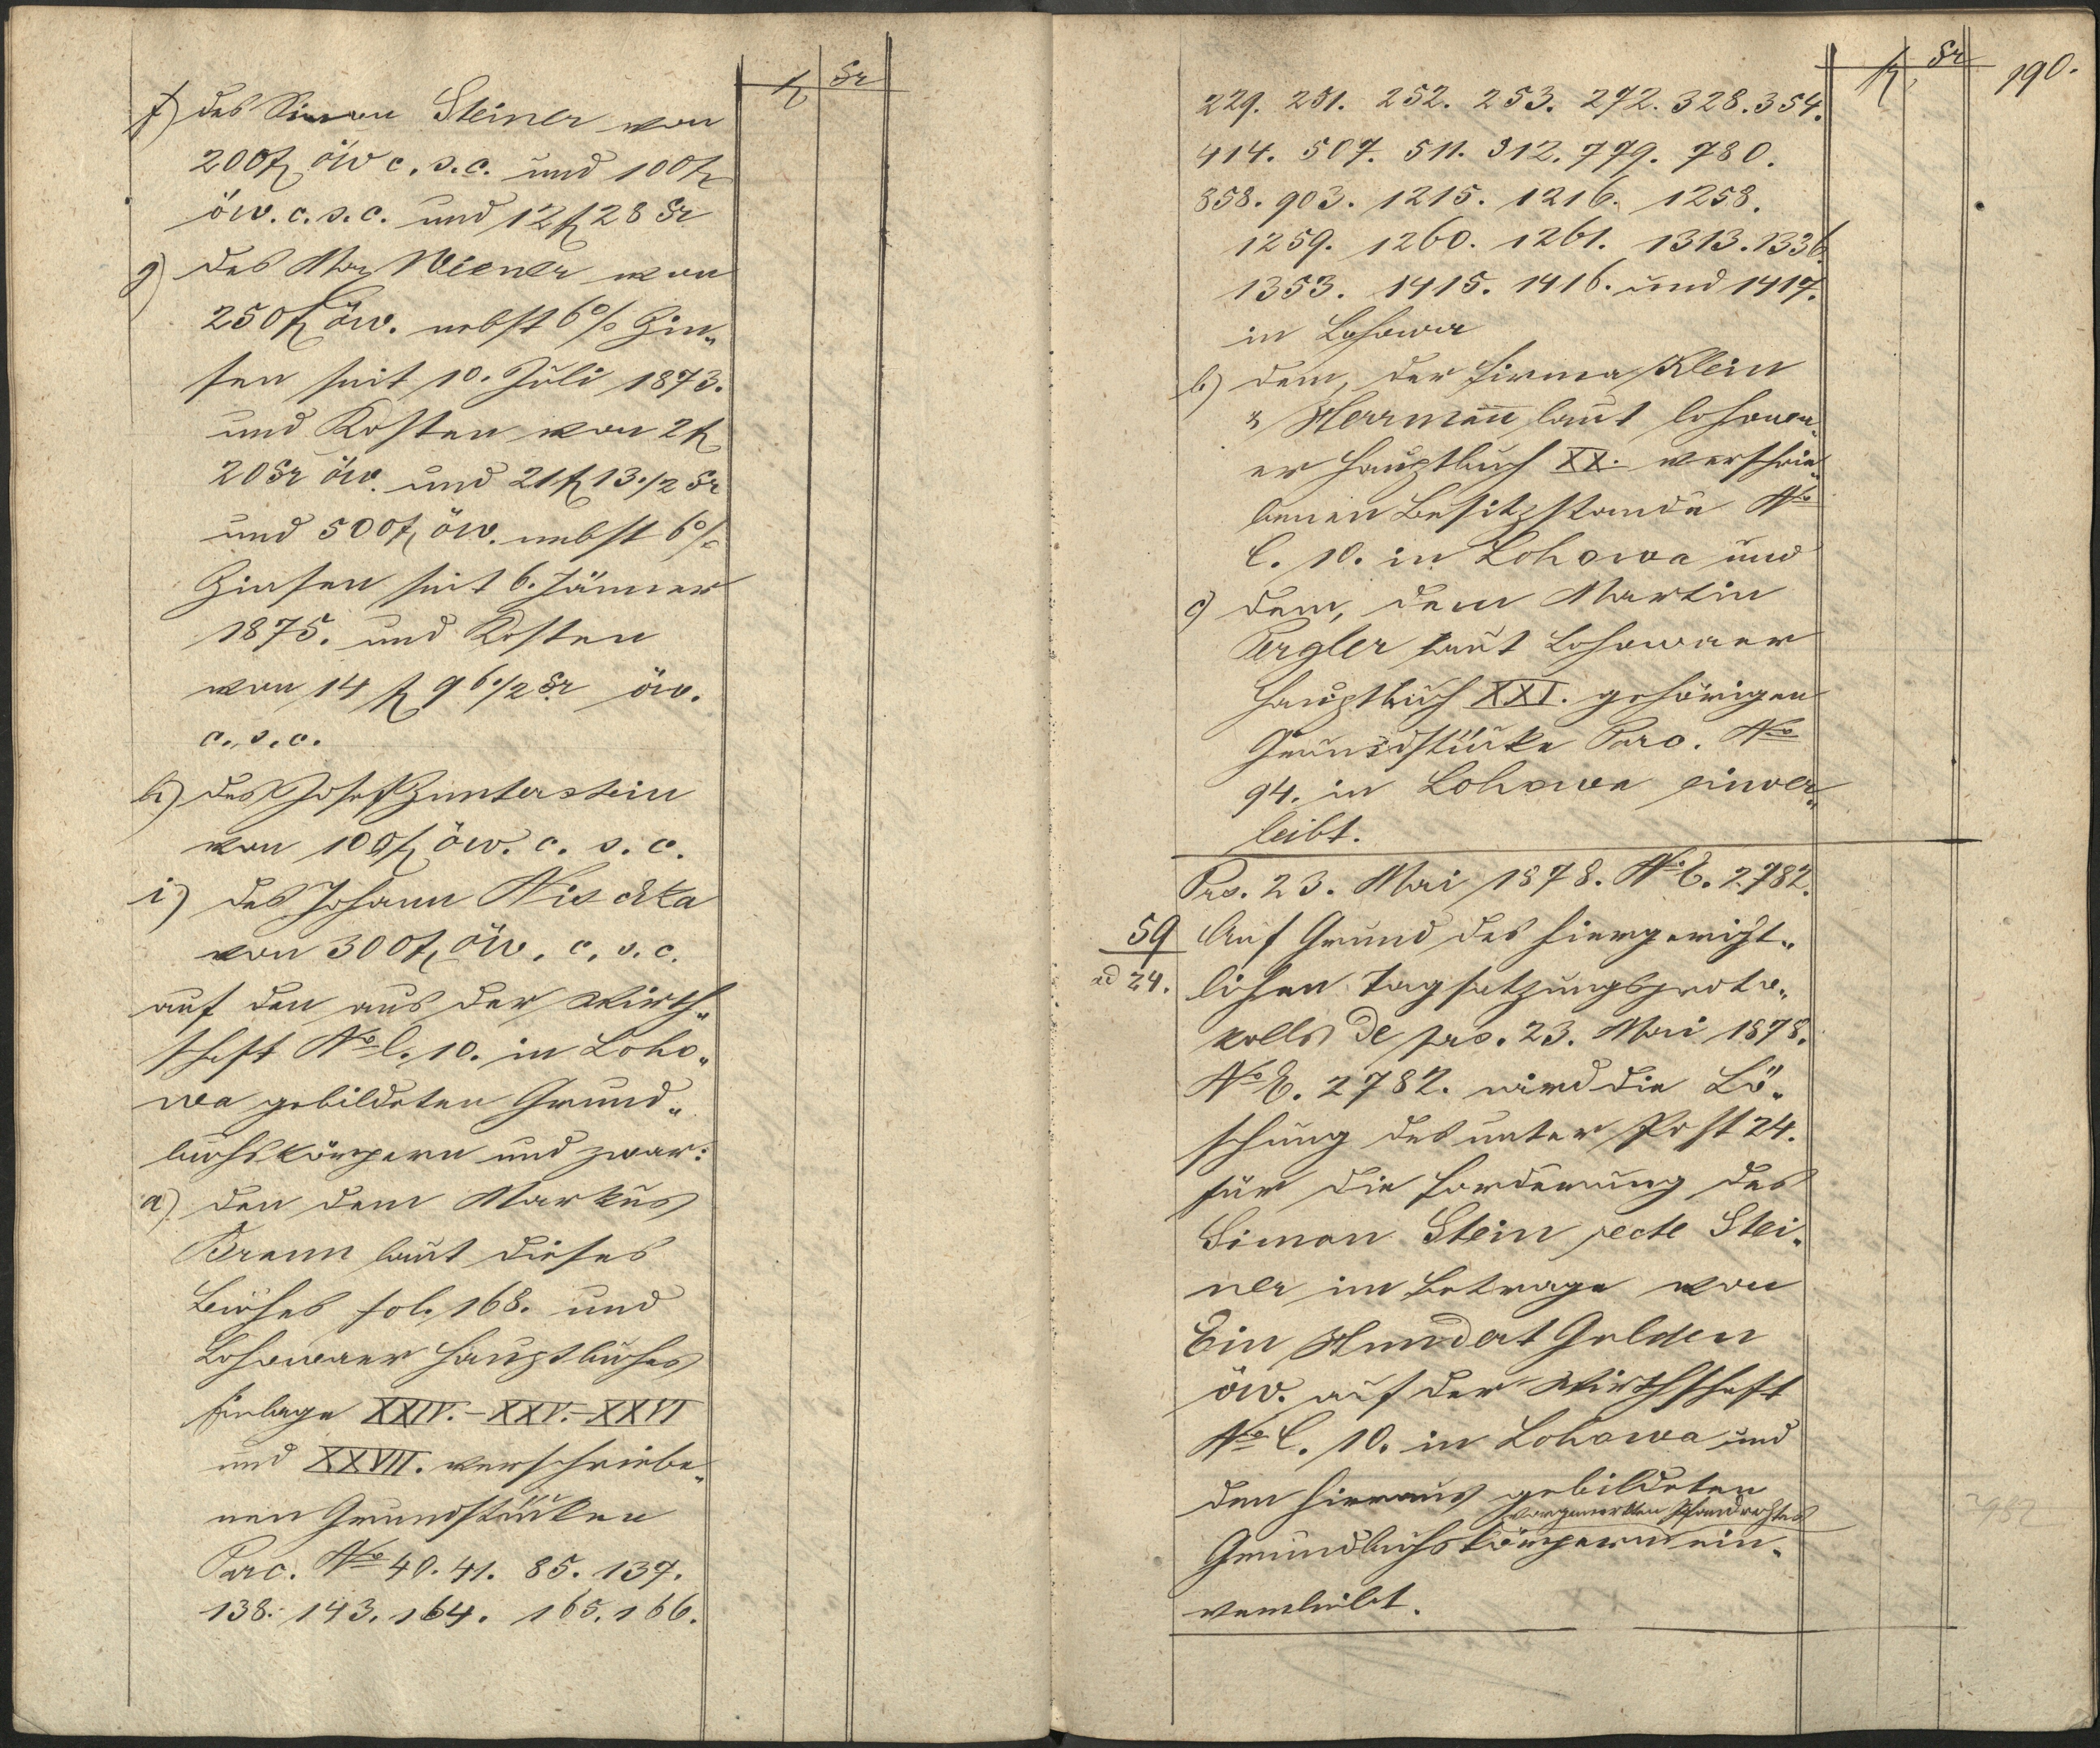 fl kr
f) des Simon Steiner von
200 fl öW c. s. c. und 100 fl
öw. c. s. c. und 12 fl 28 kr
g) des Max Wiener von
250 fl öw. nebst 6% Zin„
sen seit 10. Juli 1873.
und Kosten von 2 fl
20 kr öw. und 21 fl 13 1/2 kr
und 500 fl öw. nebst 6%
Zinsen seit 6. Jänner
1875. und Kosten
von 14 fl 96 1/2 kr öw.
c. s. c.
h) des Josef Gunterstein
von 100 fl öw. c. s. c.
i) des Johann
von 300 fl öw. c. s. c.
auf den aus der Wirth„
schaft No C. 10. in Loho„
wa gebildeten Grund„
buchskörpern und zwar:
a) den dem Markus
Braun laut dieses
Buches fol. 168. und
Lohowaer Hauptbuches
Einlage XXIV. – XXV. – XXVI
und XXVII. verschriebe„
nen Grundstücken
Parc. No 40. 41. 85. 137.
138. 143. 164. 165. 166.
fl kr 190.
229. 251. 252. 253. 272. 328. 354.
414. 507. 511. 312. 779. 780.
858. 903. 1215. 1216. 1258.
1259. 1260. 1261. 1313. 1336.
1353. 1415. 1416. und 1417.
in Lohowa
b) dem, der Firma Klein
& Herrmann laut Lohowa„
er Hauptbuch XX. verschrie„
benen Besitzstande No
C. 10. in Lohowa und
c) dem, dem Martin
Pergler laut Lohowaer
Hauptbuch XXI. gehörigen
Grundstücke Parc. No
94. in Lohowa einver„
leibt.
Prs. 23. Mai 1878. No E. 2782.
59
ad 24.
Auf Grund des hiergericht„
lichen Tagsatzungsproto„
kolls de prs. 23. Mai 1878.
No E. 2782. wird die Lö„
schung des unter Post 24.
für die Forderung des
Simon Stein recte Stei„
ner im Betrage von
Ein Hundert Gulden
öw. auf der Wirthschaft
No C. 10. in Lohowa und
den hieraus gebildeten
vorgemerkten Pfandrechtes
Grundbuchskörpern ein„
verleibt.